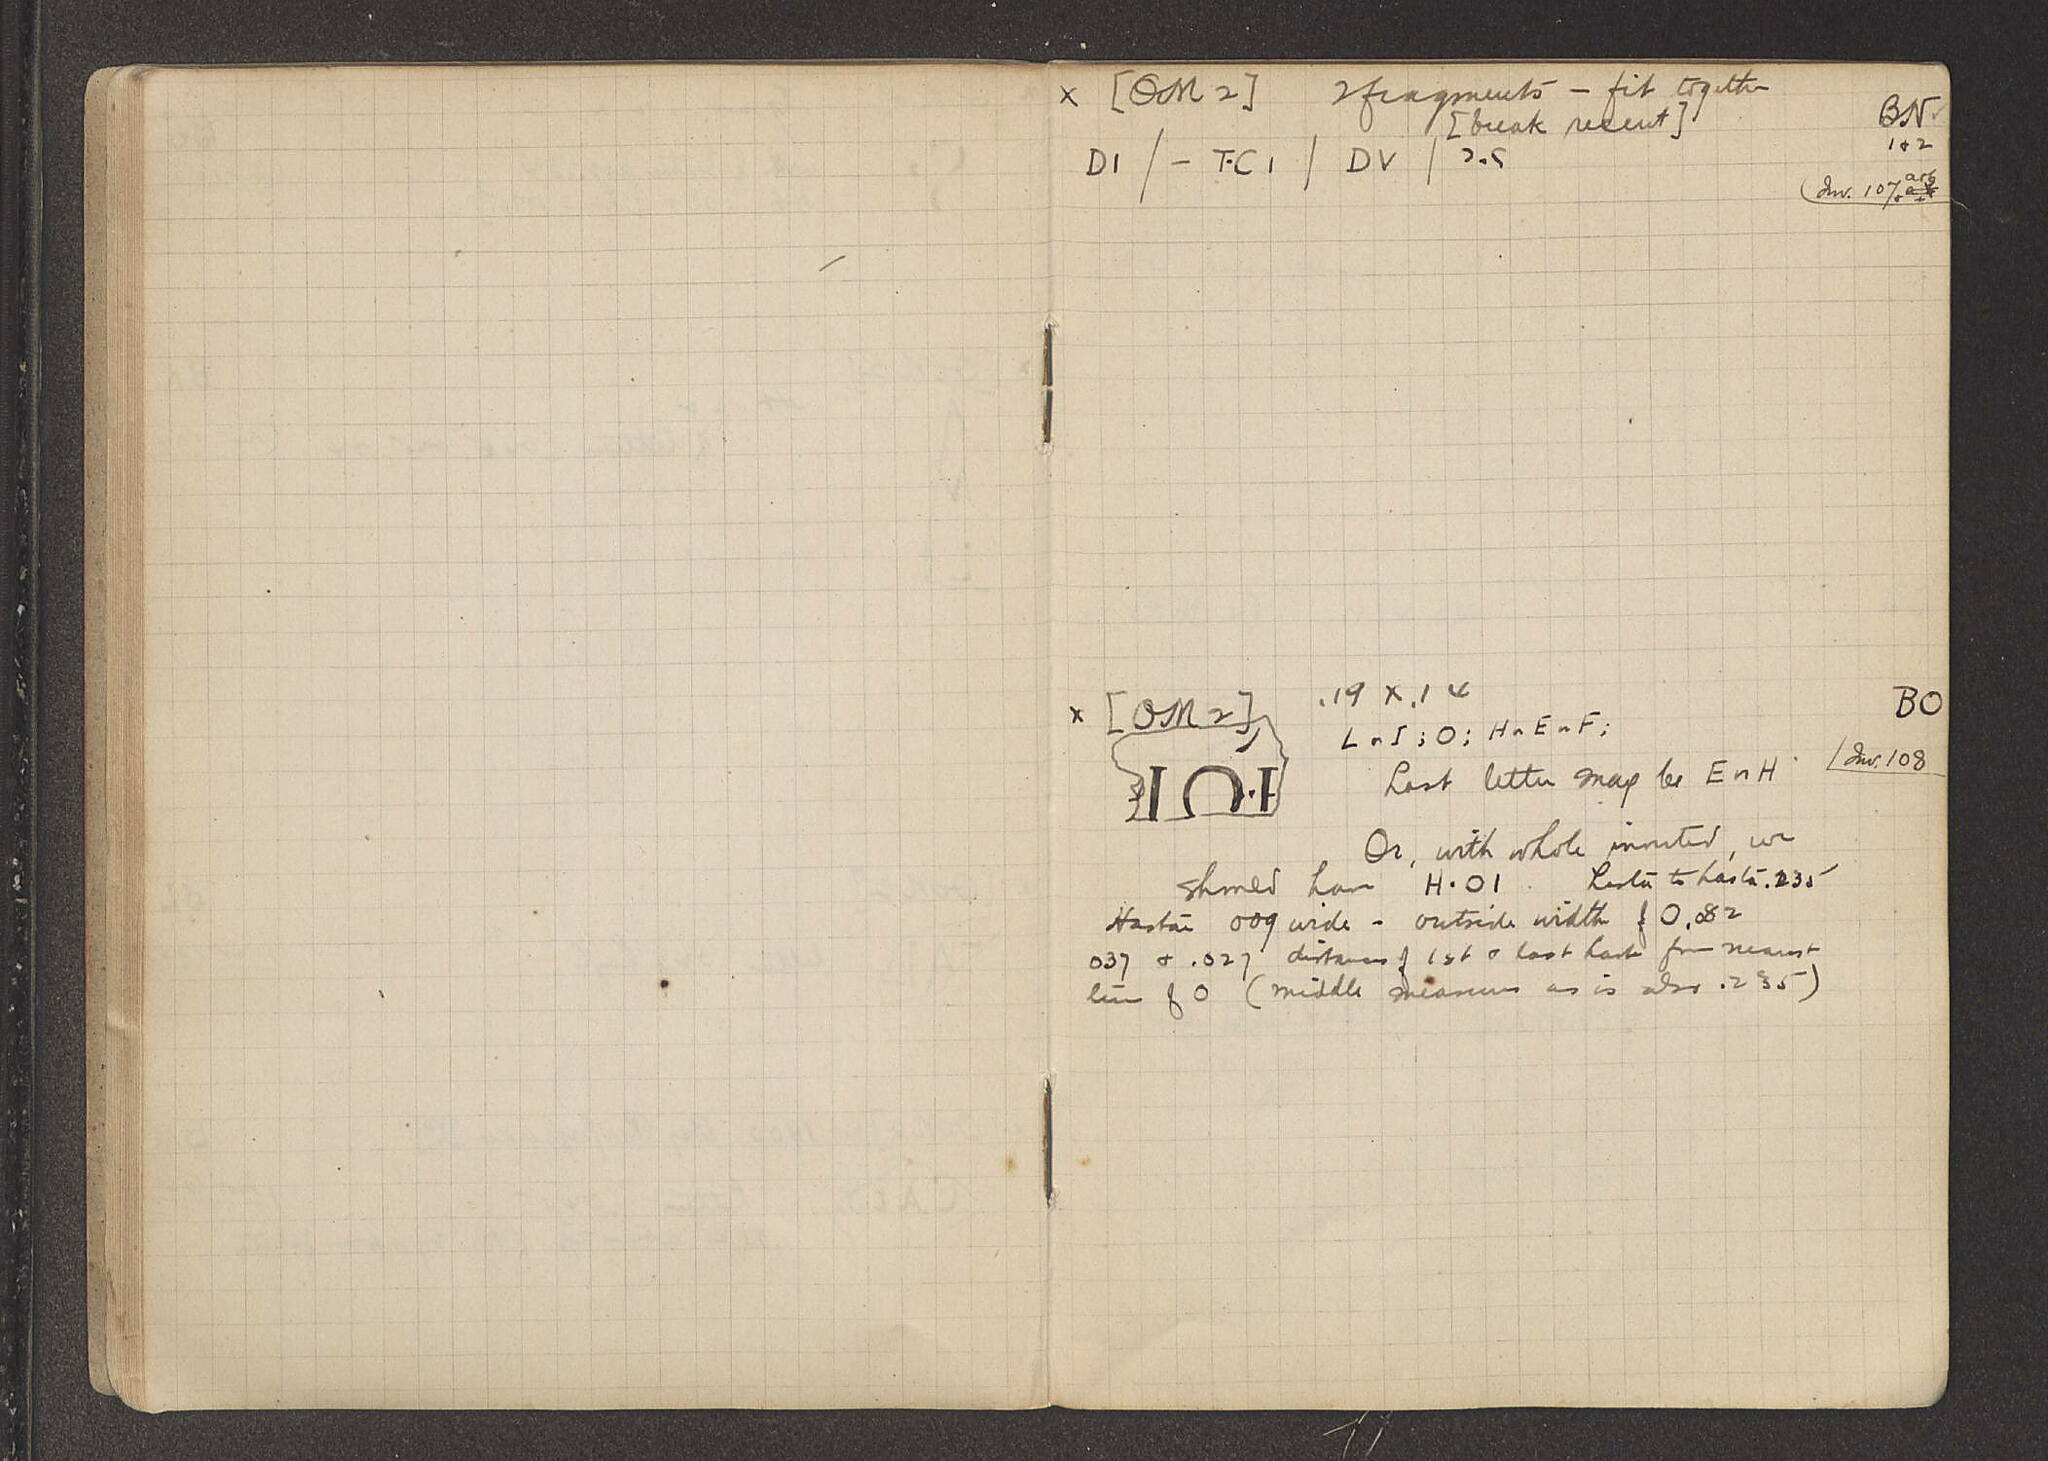 x [OM 2] 2 fragments – fit together
[break recent]
BN
1 & 2
DI / – T·C I / DV /
(Inv. 107
x [OM 2] .19 x .14
BO
L or I ; O ; H or E or F ;
Last letter may be E or H
/Inv. 108
I O · E
Or, with whole inverted, we
should have H · O I . hasta to hasta .235
Hastae 009 wide – outside width of O .082
037 & .027 distances of 1st & last hasta from nearest
line of O (middle measures as is also .235)